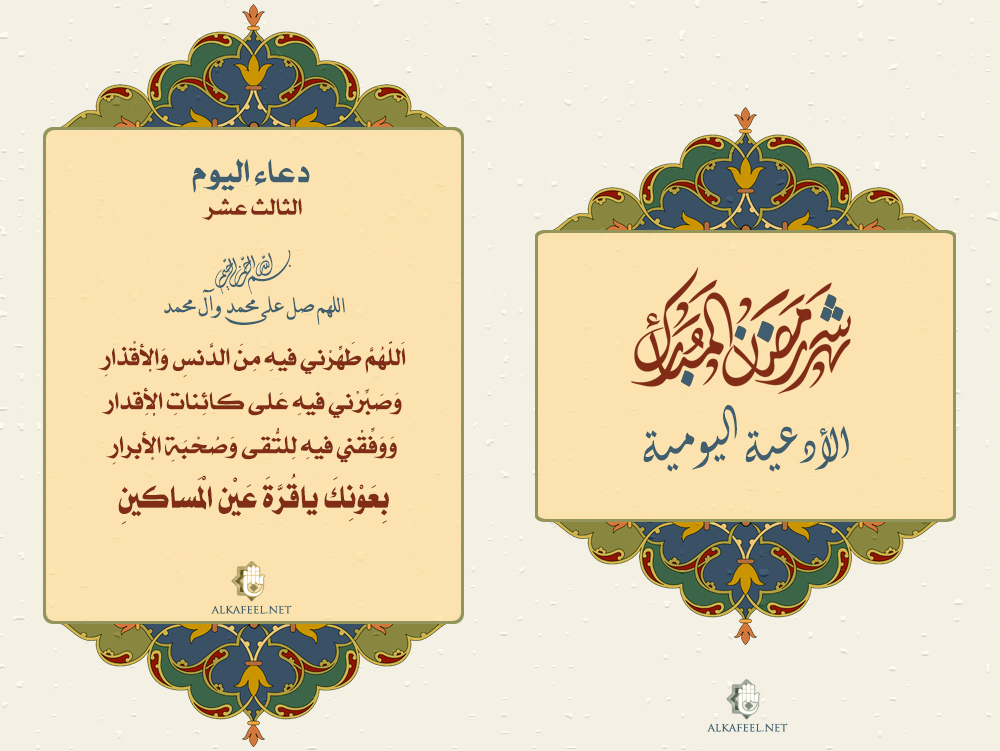 دعاء اليوم
الثالث عشر
بسم الله الرحمن الرحيم
اللهم صل على محمد وآل محمد
اَللّهُمَّ طَهِّرْني فيهِ مِنَ الدَّنسِ وَالأقْذارِ
وَصَبِّرْني فيهِ عَلى كائِناتِ الأقدار
وَوَفِّقْني فيهِ للتُّقى وَصُحْبَةِ الأبرارِ
بِعَوْنِكَ ياقُرَّةَ عَيْن الْمَساكينِ
ALKAFEEL.NET
شهر رمضان المبارك
الأدعية اليومية
ALKAFEEL.NET